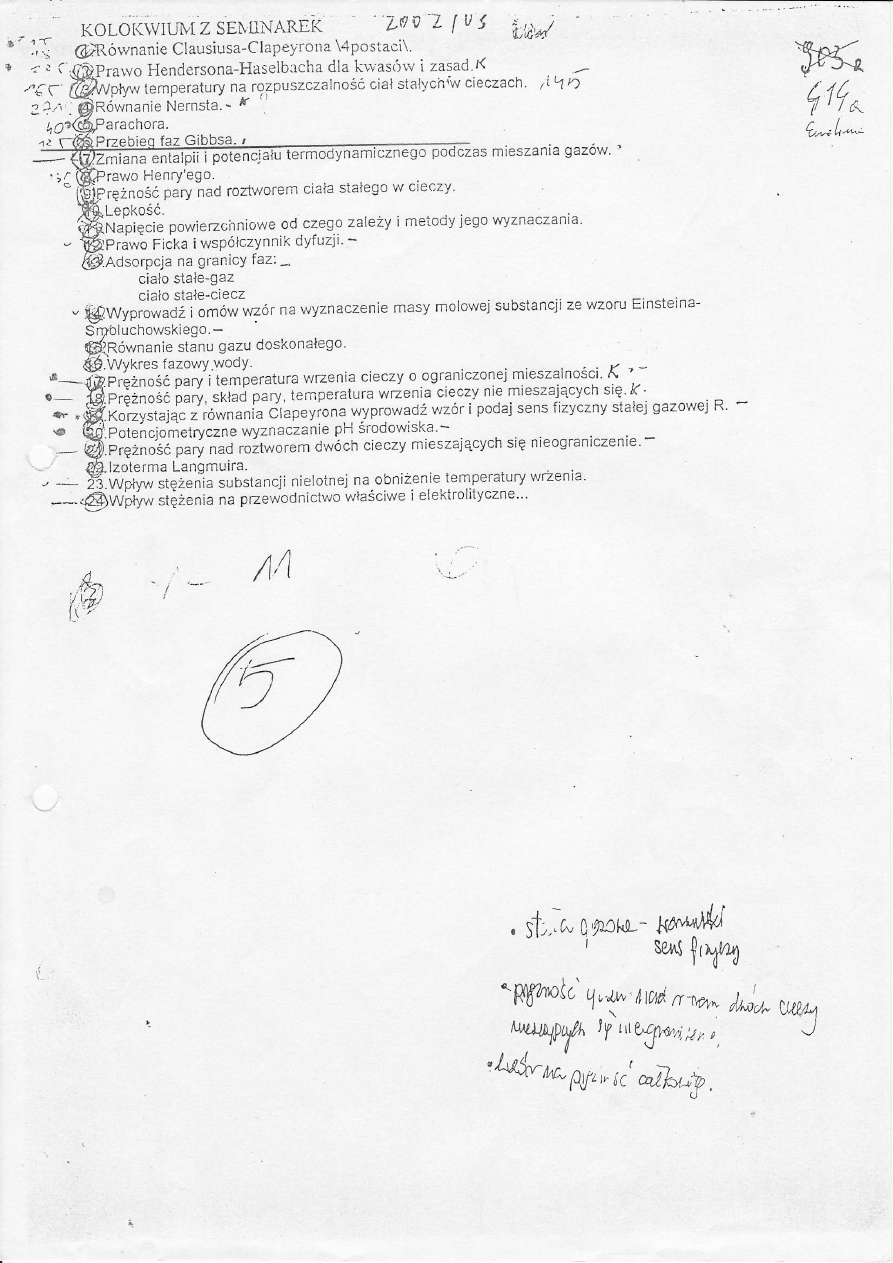 KOLOKWIUM Z SEMINAREK 2002/03
1.Równanie Clausiusa-Clapeyrona \4postaci\.
2.Prawo Hendersona-Haselbacha dla kwasów i zasad. K
3.Wpływ temperatury na rozpuszczalność ciał stałych w cieczach. 145
4.Równanie Nernsta.- K
5.Parachora.
6.Przebieg faz Gibbsa.
7.Zmiana entalpii i potencjału termodynamicznego podczas mieszania gazów.
8.Prawo Henry'ego.
9.Prężność pary nad roztworem ciała stałego w cieczy.
10.Lepkość.
11.Napięcie powierzchniowe od czego zależy i metody jego wyznaczania.
12.Prawo Ficka i współczynnik dyfuzji. –
13.Adsorpcja na granicy faz:
ciało stałe-gaz
ciało stałe-ciecz
14.Wyprowadź i omów wzór na wyznaczenie masy molowej substancji ze wzoru Einsteina-
Smoluchowskiego.–
15.Równanie stanu gazu doskonałego.
16.Wykres fazowy wody.
17.Prężność pary i temperatura wrzenia cieczy o ograniczonej mieszalności. K
18.Prężność pary, skład pary, temperatura wrzenia cieczy nie mieszających się. K
19.Korzystając z równania Clapeyrona wyprowadź wzór i podaj sens fizyczny stałej gazowej R. –
20.Potencjometryczne wyznaczanie pH środowiska.–
21.Prężność pary nad roztworem dwóch cieczy mieszających się nieograniczenie.–
22.Izoterma Langmuira.
23.Wpływ stężenia substancji nielotnej na obniżenie temperatury wrzenia.
24.Wpływ stężenia na przewodnictwo właściwe i elektrolityczne...
11
5
gazowa -
sens fizyczny
• prężność nad dwóch cieczy
mieszających się
• wzór na prężność całkowitą.